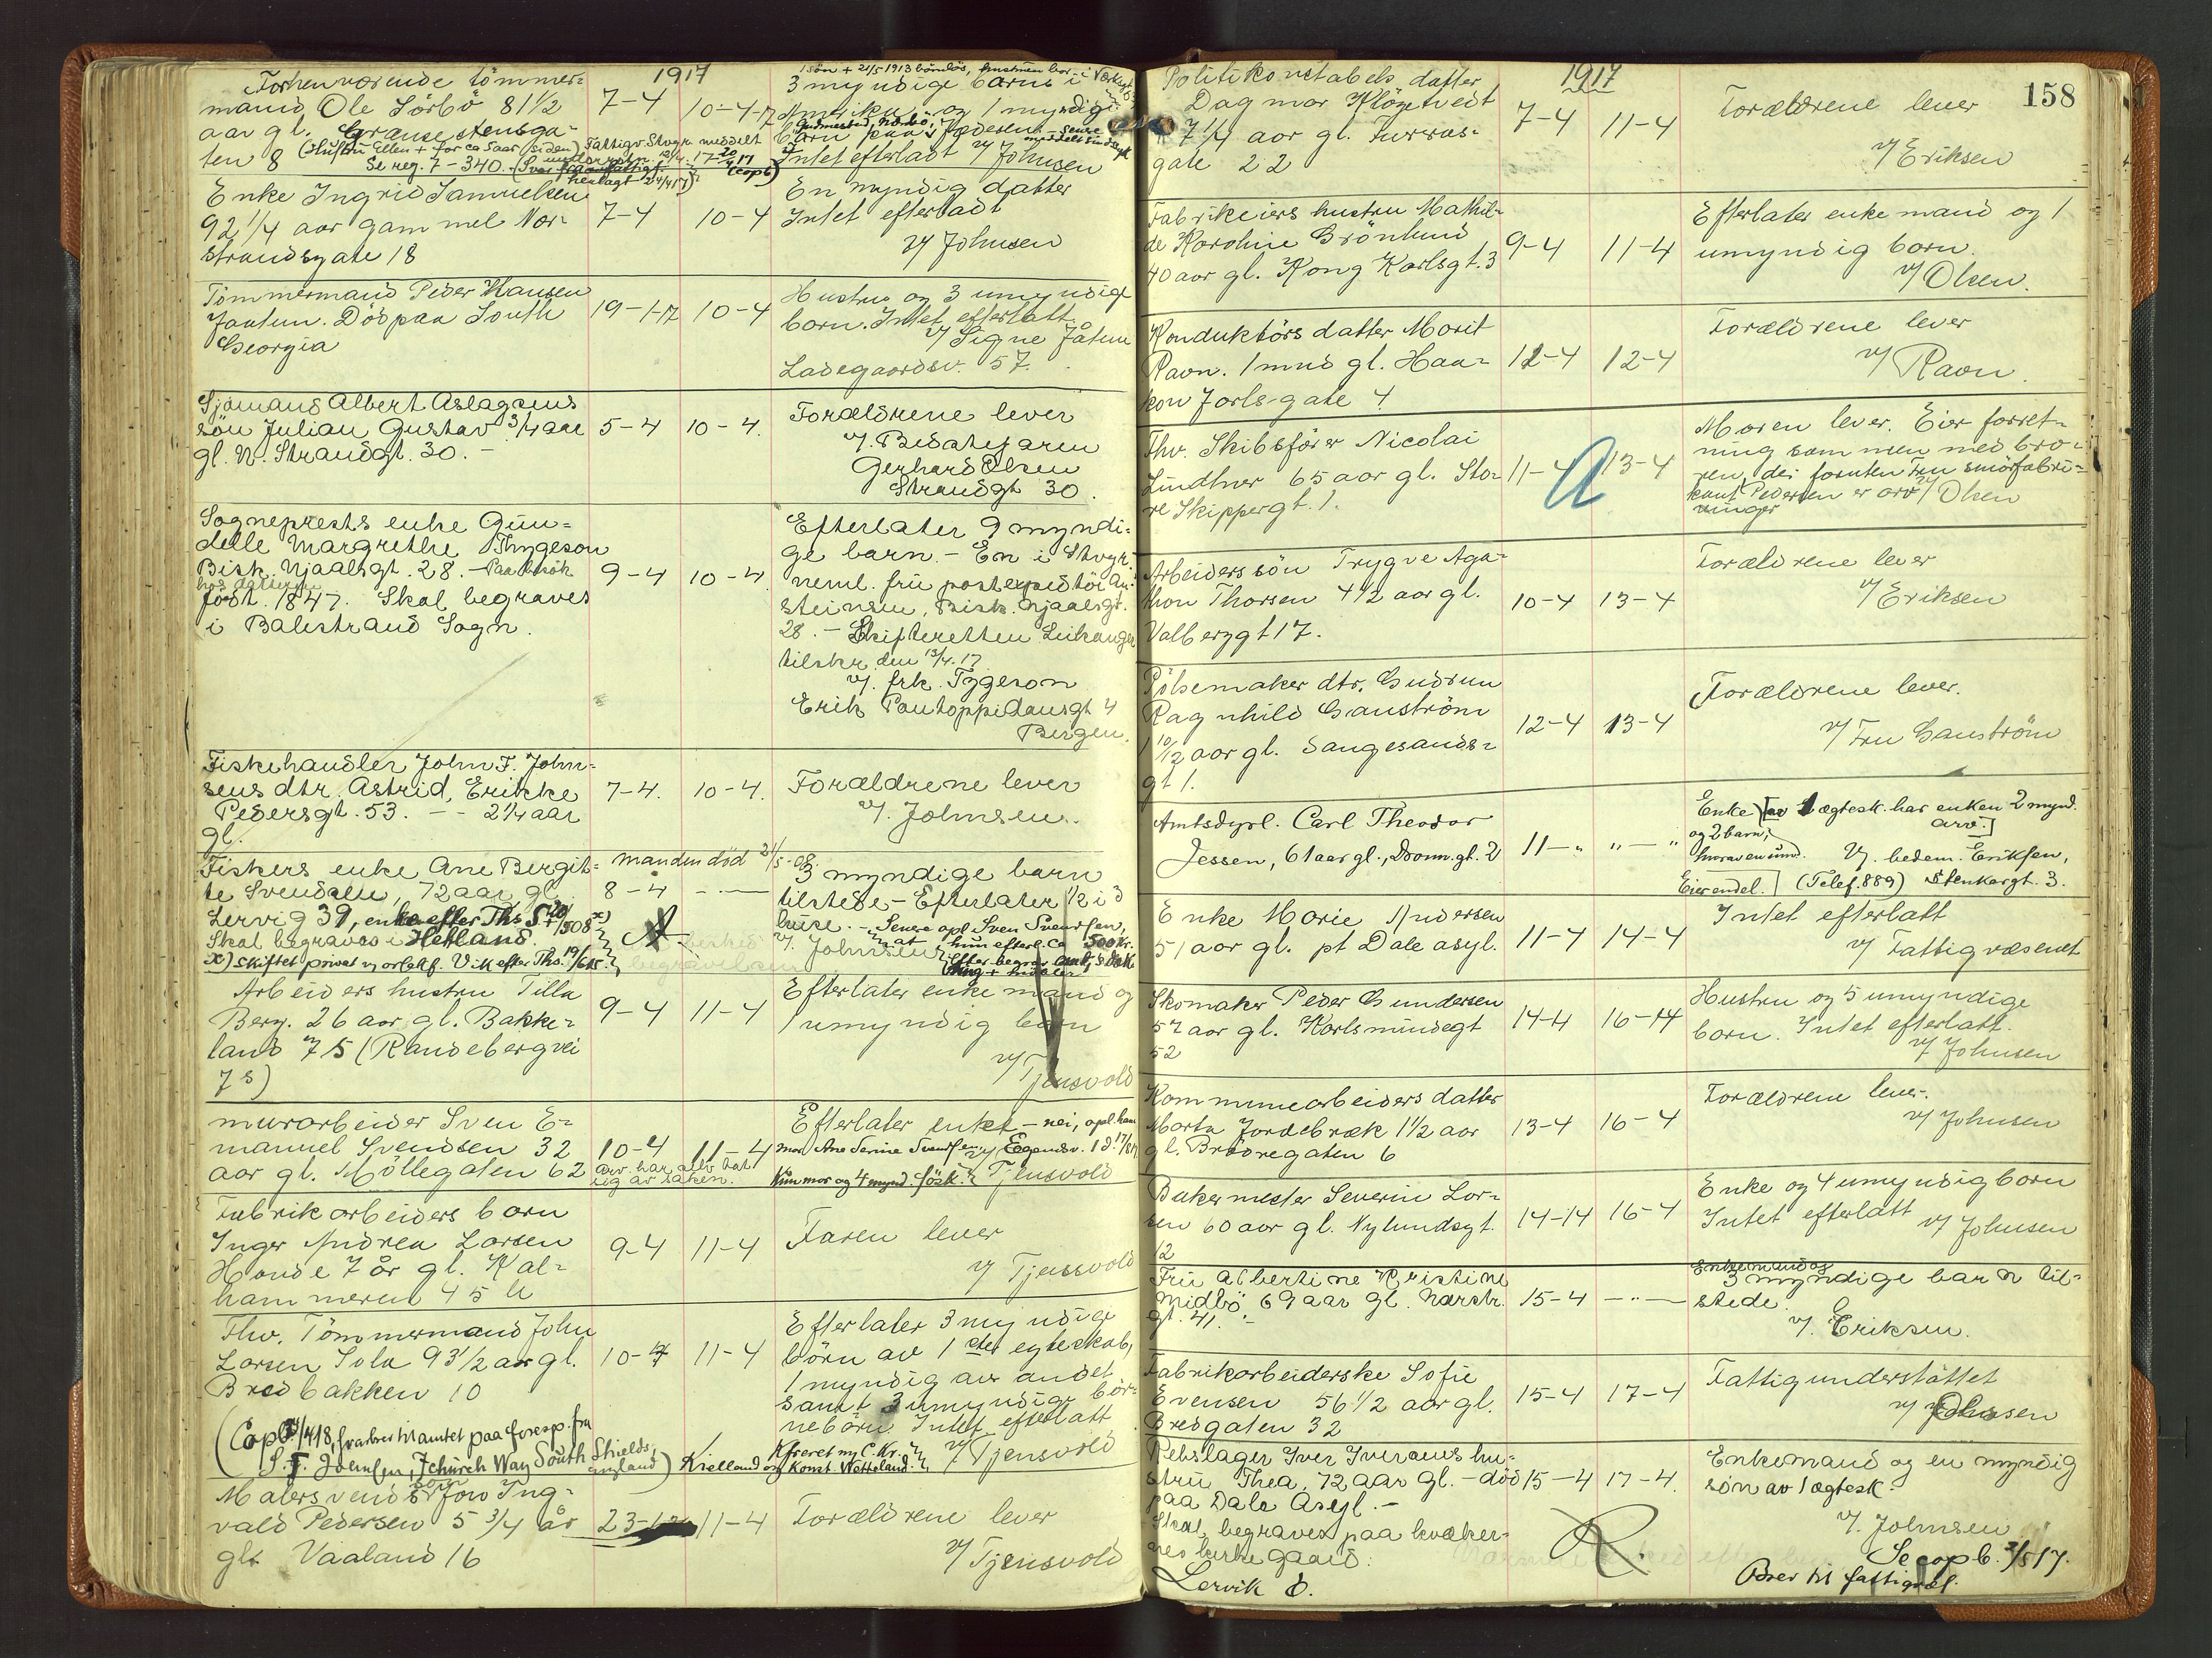 1917
Forhenværende tömmer-
mand Ole Sörbö 81 1/2
aar gl. Grausestensga-
ten 8 (Hustru Ellen + for ca 5 aar siden)
Se reg. 7-340.
7-4 10-4-17
1 sön + 21/5 1913 barnlös, hustruen bor i
3 myndige barn i
Amerika og 1 myndig
barn paa Jæderen
Intet efterladt
v/ Johnsen
Enke Ingrid Samuelsen
92 1/4 aar gammel Nor-
strandsgate 18
7-4 10-4
En myndig datter
Intet efterladt
v/ Johnsen
Tömmermand Peder Hansen
Jaatun. Död paa South
Georgia
19-1-17 10-4
Hustru og 3 umyndige
born. Intet efterlatt.
v/ Signe Jåtun
Ladegaardsv. 57.
Sjömand Albert Aslagsens
sön Julian Gustav 3/4 aar
gl. N. Strandgt. 30. -
5-4 10-4.
Forældrene lever
v/. Bedatejaren
Gerhard Olsen
Strandgt 30.
Sogneprests enke Gun-
delle Margrethe Thygeson
Bisk. Njaalsgt. 28. - Paa besök
hos datteren
födt. 1847. Skal begraves
i Balestrand Sogn.
9-4 10-4
Efterlater 9 myndi-
ge barn - En i Stvgr.
neml. fru postexpeditör An-
steinsen, Bisk. Njaalsgt.
28. - Skifteretten Leikanger
tilskr. den 13/4.17
v/. frk. Tygeson
Erik Pontoppidansgt 4
Bergen.
Fiskehandler John F. John-
sens dtr. Astrid, Erikke
Pedersgt. 53. - - 2 1/4 aar
gl.
7-4. 10-4.
Forældrene lever
v/. Johnsen.
Fiskers enke Ane Bergit-
te Svendsen, 72 aar gl.
Lervig 39, enke efter Ths S
Skal begraves i Hetland.
x) Skiftet privat
manden död 21/5-08.
8-4 - -
3 myndige barn
tilstede - Efterlater 1/2 i 3
huse. - Senere opl. Sven Svendsen,
at hun efterl. ca 500 kr.
v/. Johnsen
Arbeiders hustru Tilla
Berg. 26 aar gl. Bakke-
land 75 (Randebergvei
75)
9-4 11-4
Efterlater enkemand og
1 umyndig barn
v/ Tjensvold
murarbeider Sven E-
manuel Svendsen 32
aar gl. Möllegaten 62
10-4 11-4
Efterlater enke - nei, opl. han
mor Ane Serine Svendsen, Egendsv. 1 d. 17/
kun mor og 4 mynd. søsk.
v/ Tjensvold
Fabrikarbeiders barn
Inger Andrea Larsen
Hansle 7 år gl. Kal-
hammeren 45 b
9-4 11-4
Faren lever
v/ Tjensvold
Fhv. Tömmermand John
Larsen Sola 93 1/2 aar gl.
Bredbakken 10
10-4 11-4
Efterlater 3 myndige
börn av 1ste egteskab,
1 myndig av andet
samt 3 umyndige bör-
nebörn Intet efterlatt
v/ Tjensvold
7 Church Way South Shields,
England)
Kielland og Konst. Wetteland.
Malersvend
vald Pedersen 5 3/4 år
gl. Vaaland 16
11-4
Forældrene lever
v/ Tjensvold
158
1917
Politikonstabels datter
Dagmar Klögetvedt
7 1/4 aar gl. Furras-
gate 22
7-4 11-4
Forældrene lever
v/ Eriksen
Fabrikeiers hustru Mathil-
de Karoline Grönlund
40 aar gl. Kong Karlsgt. 3
9-4 11-4
Efterlater enkemand og 1
umyndig barn.
v/ Olsen.
Konduktörs datter Marit
Ravn. 1 mnd gl. Haa-
kon Jarls-gate 4
12-4 12-4
Forældrene lever
v/ Ravn.
Fhv. Skibsförer Nicolai
Lindtner 65 aar gl. Sto-
re Skippergt. 1.
11-4 13-4
Moren lever. Eier forret-
ning sammen med bro-
ren, des foruten Fru smörfabri-
kant Pedersen er arv
v/ Olsen
vinger
Arbeiders sön Trygve Aga-
thon Thorsen 4 1/2 aar gl.
Valberggt 17.
10-4 13-4
Forældrene lever
v/ Eriksen
Pölsemaker dtr. Gudrun
Ragnhild Ganström
1 10/12 aar gl. Sangesands-
gt 1.
12-4 13-4
Forældrene lever.
v/ Fru Ganström
Amtsdyrl. Carl Theodor
Jessen, 61 aar gl., Dronn. gt. 2
11-" "-"
Enke [av 1 ægtesk. har enken 2 mynd.
og 2 barn, arv.]
hvorav en um.
V/. bedem. Eriksen,
Eier endel. (Telef. 889) Stenkargt. 3.
Enke Marie Andersen
51 aar gl. pt Dale asyl.
11-4 14-4
Intet efterlatt
v/ Fattigvæsenet
Skomaker Peder Gundersen
57 aar gl. Karlsmindegt
52
14-4 16-14
Hustru og 5 umyndige
born. Intet efterlatt.
v/ Johnsen
Kommunearbeiders datter
Marta Jordebræk 1 1/2 aar
gl. Brödregaten 6
13-4 16-4
Forældrene lever.
v/ Johnsen
Bakermester Severin Lar-
sen 60 aar gl. Nylundsgt.
12
14-14 16-4
Enke og 4 umyndig born
Intet efterlatt
v/ Johnsen
Fru Albertine Kristine
Midbö 69 aar gl. Nærstr.
gt. 41. -
15-4 -"-
Enkemand og
3 myndige barn til-
stede.
v/. Eriksen.
Fabrikarbeiderske Sofie
Evensen 56 1/2 aar gl.
Bredgaten 32
15-4 17-4
Fattigunderstöttet
v/ Johnsen
Rebslager Iver Iversens hu-
stru Thea, 72 aar gl. - död
paa Dale Asyl. -
Skal begraves paa kvæker-
nes kirkegaard.
Lervik 6.
15-4 17-4.
Enkemand og en myndig
sön av 1 ægtesk.
v/. Johnsen
Se cop b. 3/5 17.
Brev til fattigvæs.